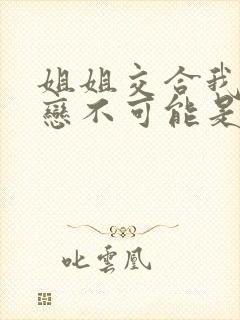 姐姐交合我
戀不可能是
叱雲凰